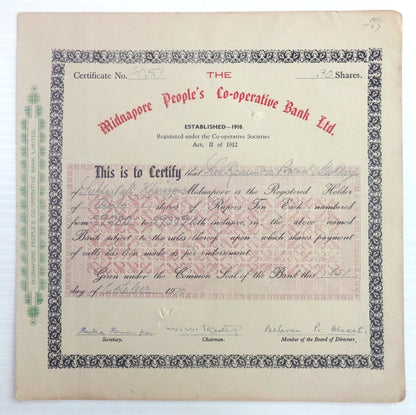 Certificate No. 30 Shares.
THE
Midnapore People's Co-operative Bank Ltd.
ESTABLISHED—1910.
Registered under the Co-operative Societies
Act, II of 1912
This is to Certify that
Midnapore is the Registered Holder
of shares of Rupees Ten Each numbered
from to both inclusive, in the above named
Bank subject to the rules thereof upon which shares payment
of calls has been made as per endorsement.
Given under the Common Seal of the Bank this
day of 19
Secretary.
Chairman.
Member of the Board of Directors.
MIDNAPORE PEOPLE'S CO-OPERATIVE BANK LIMITED.